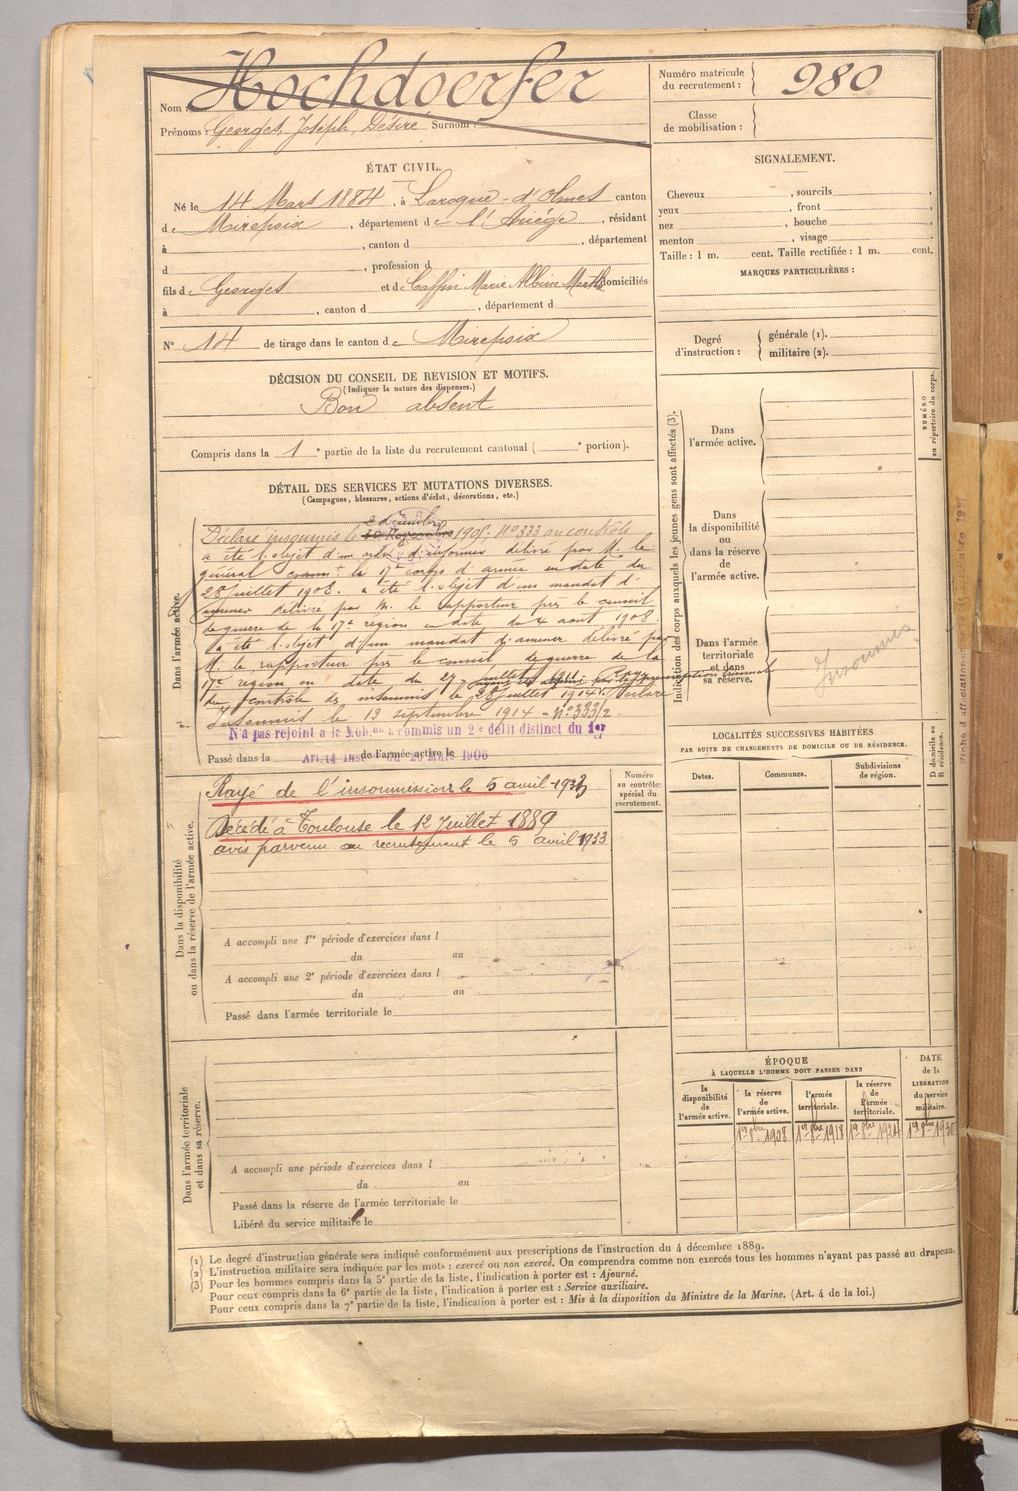 Nom : Hochdoerfer
Prénoms : Georges, Joseph, Désiré Surnom :
Numéro matricule du recrutement : 980
Classe de mobilisation :
ÉTAT CIVIL.
Né le 14 Mars 1884, à Laroque-d'Olmes canton
de Mirepoix, département de l'Ariège, résidant
à , canton d , département
d , profession d
fils de Georges et de Caffin Marie Albine Marthe domiciliés
à , canton d , département d
N° 14 de tirage dans le canton de Mirepoix
SIGNALEMENT.
Cheveux , sourcils ,
yeux , front ,
nez , bouche ,
menton , visage .
Taille : 1 m. cent. Taille rectifiée : 1 m. cent.
MARQUES PARTICULIÈRES :
Degré d'instruction : générale (1).
militaire (2).
DÉCISION DU CONSEIL DE REVISION ET MOTIFS.
(Indiquer la nature des dispenses.)
Bon absent
Compris dans la 1e partie de la liste du recrutement cantonal ( e portion).
DÉTAIL DES SERVICES ET MUTATIONS DIVERSES.
(Campagnes, blessures, actions d'éclat, décorations, etc.)
Dans l'armée active.
2 décembre
Déclaré insoumis le 10 Novembre 1905. N° 333 au contrôle
a été l'objet d'un ordre d'informer délivré par M. le
général comt le 17e corps d'armée en date du
28 juillet 1908. a été l'objet d'un mandat d'
amener délivré par M. le rapporteur près le conseil
de guerre de la 17e région en date du 4 aout 1908.
a été l'objet d'un mandat d'amener délivré par
M. le rapporteur près le conseil de guerre de la
17e région en date du 27 juillet 1911. Rayé
du contrôle des insoumis le 28 juillet 1914. Déclaré
Insoumis le 13 septembre 1914 - N° 333/2.
N'a pas rejoint à la Mob.on a commis un 2e délit distinct du 1er
Art. 14 Inst. du 20 Mars 1906
Passé dans la de l'armée active le
Dans la disponibilité ou dans la réserve de l'armée active.
Rayé de l'insoumission le 5 avril 1933
Décédé à Toulouse le 12 Juillet 1889
avis parvenu au recrutement le 5 avril 1933
A accompli une 1re période d'exercices dans l
du au
A accompli une 2e période d'exercices dans l
du au
Passé dans l'armée territoriale le
Numéro au contrôle spécial du recrutement.
Dans l'armée territoriale et dans sa réserve.
A accompli une période d'exercices dans l
du au
Passé dans la réserve de l'armée territoriale le
Libéré du service militaire le
Indication des corps auxquels les jeunes gens sont affectés (3).
Dans l'armée active.
Dans la disponibilité ou dans la réserve de l'armée active.
Dans l'armée territoriale et dans sa réserve.
Insoumis
NUMÉRO au répertoire du corps.
LOCALITÉS SUCCESSIVES HABITÉES
PAR SUITE DE CHANGEMENTS DE DOMICILE OU DE RÉSIDENCE.
Dates. Communes. Subdivisions de région. D domicile ou R résidence.
ÉPOQUE
À LAQUELLE L'HOMME DOIT PASSER DANS
la disponibilité de l'armée active. la réserve de l'armée active. l'armée territoriale. la réserve de l'armée territoriale. DATE de la LIBÉRATION du service militaire.
1er 8bre 1908 1er 8bre 1918 1er 8bre 1924 1er 8bre 1930
(1) Le degré d'instruction générale sera indiqué conformément aux prescriptions de l'instruction du 4 décembre 1889.
(2) L'instruction militaire sera indiquée par les mots : exercé ou non exercé. On comprendra comme non exercés tous les hommes n'ayant pas passé au drapeau.
(3) Pour les hommes compris dans la 5e partie de la liste, l'indication à porter est : Ajourné.
Pour ceux compris dans la 6e partie de la liste, l'indication à porter est : Service auxiliaire.
Pour ceux compris dans la 7e partie de la liste, l'indication à porter est : Mis à la disposition du Ministre de la Marine. (Art. 4 de la loi.)